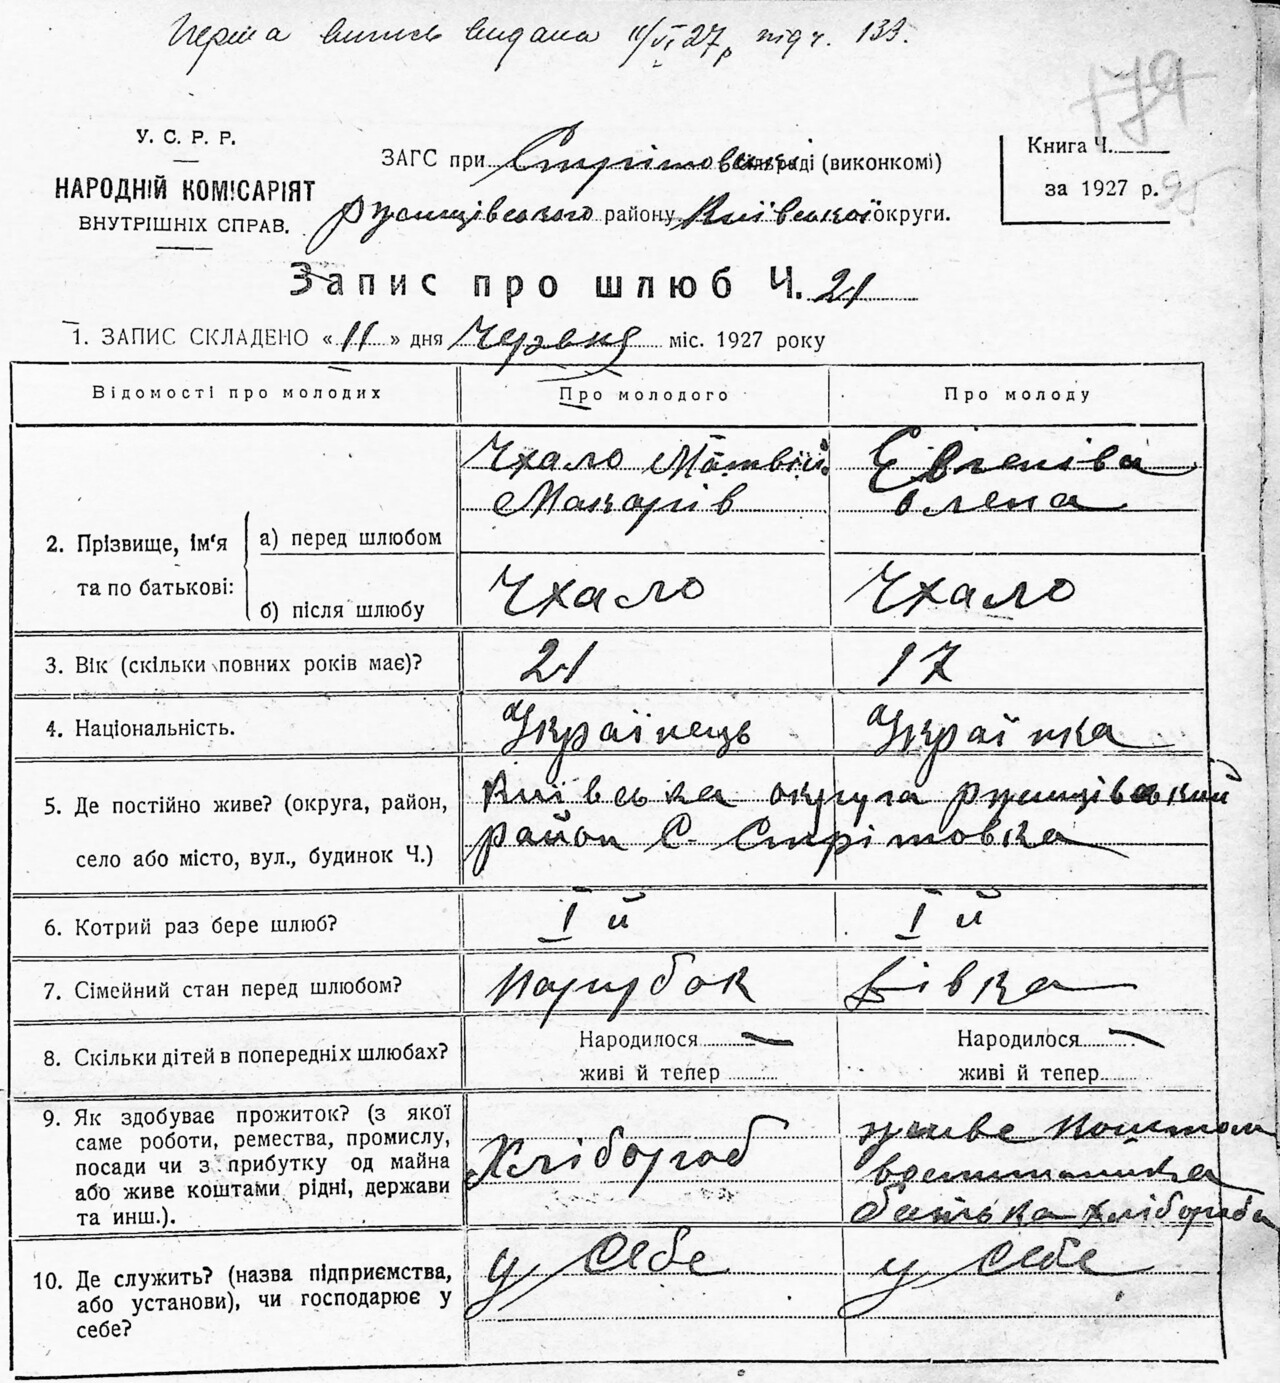 Перша випись видана 11/VI 27 р під ч. 133.
179
У. С. Р. Р.
НАРОДНІЙ КОМІСАРІЯТ
ВНУТРІШНІХ СПРАВ.
ЗАГС при Стрітовськ сільраді (виконкомі)
Ржищівського району Київської округи.
Книга Ч.
за 1927 р.
Запис про шлюб Ч. 21
1. ЗАПИС СКЛАДЕНО « 11 » дня Червня міс. 1927 року
Відомості про молодих Про молодого Про молоду
2. Прізвище, ім'я та по батькові:
а) перед шлюбом
Чхало Матвій
Макарів
Євгеніва
Олена
б) після шлюбу Чхало Чхало
3. Вік (скільки повних років має)? 21 17
4. Національність. Українець Українка
5. Де постійно живе? (округа, район,
село або місто, вул., будинок Ч.)
Київська округа Ржищівський
район С. Стрітовка
6. Котрий раз бере шлюб? I й I й
7. Сімейний стан перед шлюбом? Парубок Дівка
8. Скільки дітей в попередніх шлюбах?
Народилося — Народилося —
живі й тепер живі й тепер
9. Як здобуває прожиток? (з якої
саме роботи, ремества, промислу,
посади чи з прибутку од майна
або живе коштами рідні, держави
та инш.).
Хлібороб
живе коштом
батька хлібороба
10. Де служить? (назва підприємства,
або установи), чи господарює у
себе?
у себе у себе